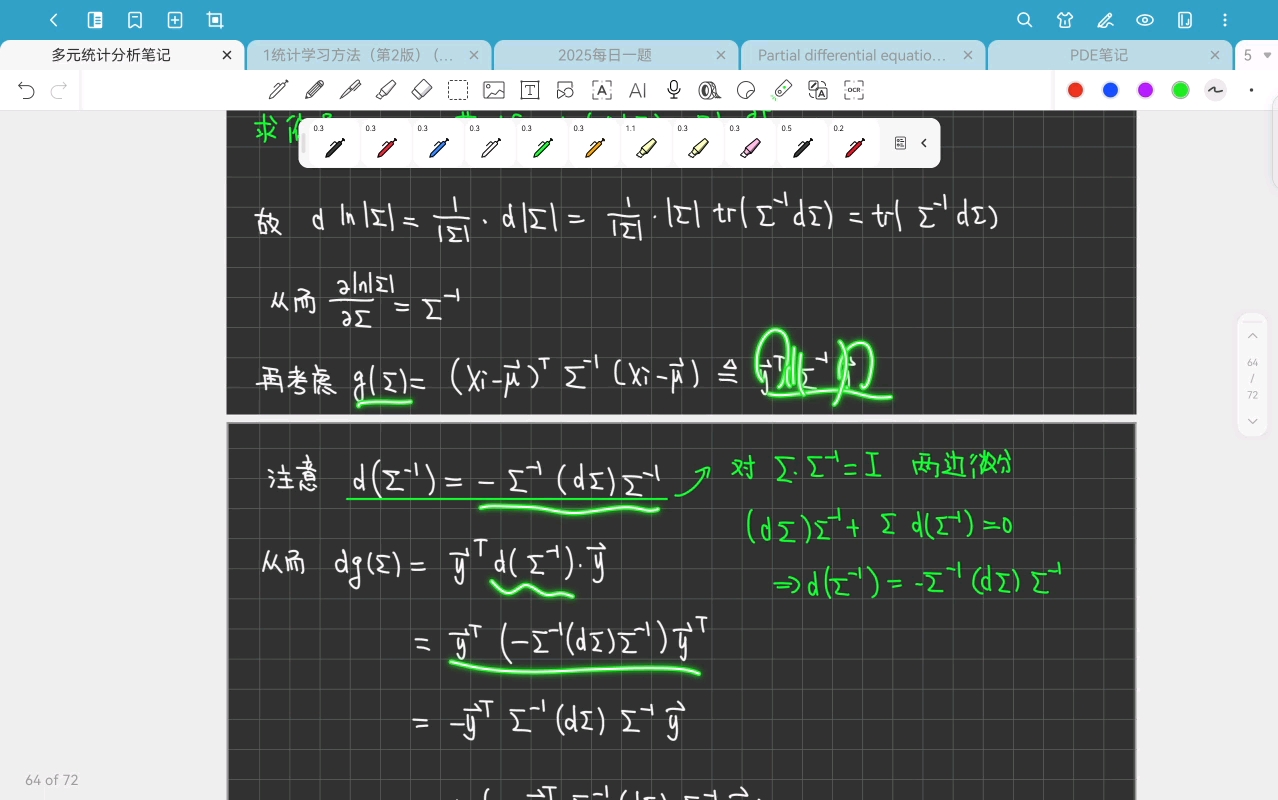 多元统计分析笔记 × 1统计学习方法（第2版）(... × 2025每日一题 × Partial differential equatio... × PDE笔记 × 5
AI OCR
求
0.3 0.3 0.3 0.3 0.3 0.3 1.1 0.3 0.3 0.5 0.2
故 d ln|Σ| = 1/|Σ| · d|Σ| = 1/|Σ| · |Σ| tr(Σ⁻¹dΣ) = tr(Σ⁻¹dΣ)
从而 ∂ln|Σ|/∂Σ = Σ⁻¹
再考虑 g(Σ) = (Xi-μ⃗)ᵀ Σ⁻¹ (Xi-μ⃗) ≜ y⃗ᵀ d(Σ⁻¹) y⃗
64
/
72
注意 d(Σ⁻¹) = -Σ⁻¹(dΣ)Σ⁻¹
对 Σ·Σ⁻¹ = I 两边微分
(dΣ)Σ⁻¹ + Σ d(Σ⁻¹) = 0
⇒ d(Σ⁻¹) = -Σ⁻¹(dΣ)Σ⁻¹
从而 dg(Σ) = y⃗ᵀ d(Σ⁻¹)·y⃗
= y⃗ᵀ (-Σ⁻¹(dΣ)Σ⁻¹) y⃗ᵀ
= -y⃗ᵀ Σ⁻¹(dΣ) Σ⁻¹ y⃗
64 of 72